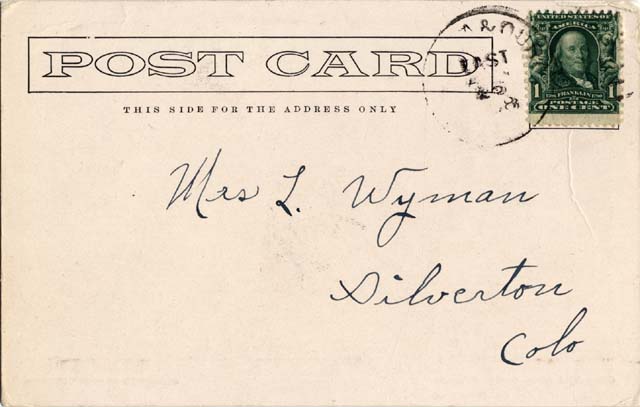 POST CARD
THIS SIDE FOR THE ADDRESS ONLY
EAST
UNITED STATES OF
AMERICA
1 FRANKLIN 1
POSTAGE
ONE CENT
Mrs L. Wyman
Silverton
Colo